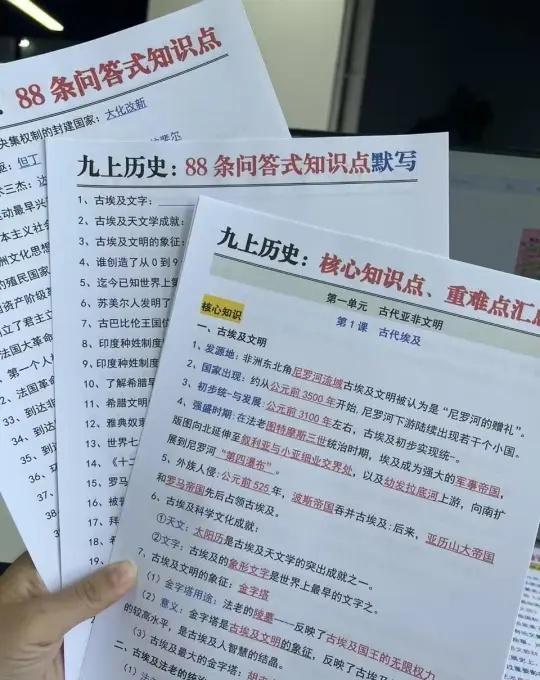 88 条问答式知识点
央集权制的封建国家：大化改新
驱：但丁
术三杰：达
运动最早兴
本主义社会
洲文化思想
的殖民国家
国资产阶级革
立了君主立
法国大革命
、第一个人
2、法国革命
33、到达非
34、到达
35、到
36、
37、
38
九上历史：88 条问答式知识点默写
1、古埃及文字：
2、古埃及天文学成就：
3、古埃及文明的象征：
4、谁创造了从 0 到 9
5、迄今已知世界上第
6、苏美尔人发明了
7、古巴比伦王国位
8、印度种姓制度
9、印度种姓制度
10、了解希腊早
11、希腊文明
12、雅典奴隶
13、世界七
14、《十二
15、罗马
16、被誉
17、拜
18、
19、
九上历史：核心知识点、重难点汇总
第一单元 古代亚非文明
第 1 课 古代埃及
核心知识
一、古埃及文明
1、发源地：非洲东北角尼罗河流域古埃及文明被认为是“尼罗河的赠礼”。
2、国家出现：约从公元前 3500 年开始，尼罗河下游陆续出现若干个小国。
3、初步统一与发展：公元前 3100 年左右，古埃及初步实现统一。
4、强盛时期：在法老图特摩斯三世统治时期，埃及成为强大的军事帝国，
版图向北延伸至叙利亚与小亚细亚交界处，以及幼发拉底河上游，向南扩
展到尼罗河“第四瀑布”。
5、外族入侵：公元前 525 年，波斯帝国吞并古埃及；后来，亚历山大帝国
和罗马帝国先后占领古埃及。
6、古埃及科学文化成就：
①天文：太阳历是古埃及天文学的突出成就之一。
②文字：古埃及的象形文字是世界上最早的文字之。
7、古埃及文明的象征：金字塔
（1）金字塔用途：法老的陵墓——反映了古埃及国王的无限权力
（2）意义：金字塔是古埃及文明的象征，反映了古埃及
的较高水平，是古埃及人智慧的结晶。
（3）古埃及最大的金字塔：胡
二、古埃及法老的统治